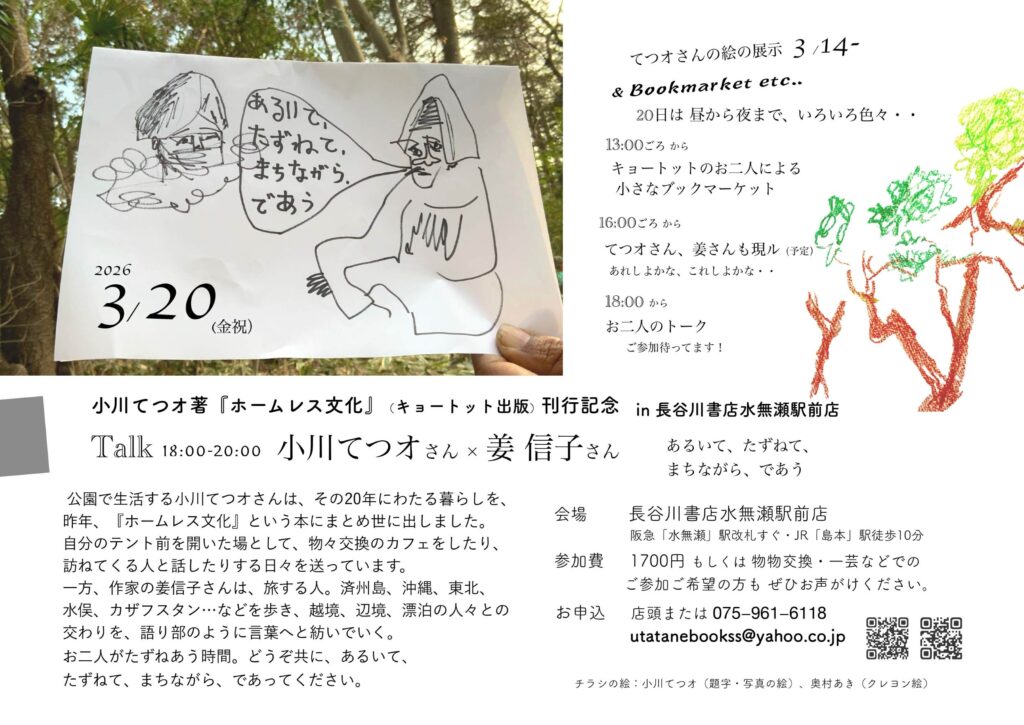 あるいて、
たずねて、
まちながら、
であう
2026
3/20
(金祝)
てつオさんの絵の展示 3/14-
& Bookmarket etc..
20日は 昼から夜まで、いろいろ色々・・
13:00ごろ から
キョートットのお二人による
小さなブックマーケット
16:00ごろ から
てつオさん、姜さんも現ル (予定)
あれしよかな、これしよかな・・
18:00 から
お二人のトーク
ご参加待ってます！
小川てつオ著『ホームレス文化』（キョートット出版）刊行記念 in 長谷川書店水無瀬駅前店
Talk 18:00-20:00 小川てつオさん × 姜 信子さん
あるいて、たずねて、
まちながら、であう
公園で生活する小川てつオさんは、その20年にわたる暮らしを、
昨年、『ホームレス文化』という本にまとめ世に出しました。
自分のテント前を開いた場として、物々交換のカフェをしたり、
訪ねてくる人と話したりする日々を送っています。
一方、作家の姜信子さんは、旅する人。済州島、沖縄、東北、
水俣、カザフスタン…などを歩き、越境、辺境、漂泊の人々との
交わりを、語り部のように言葉へと紡いでいく。
お二人がたずねあう時間。どうぞ共に、あるいて、
たずねて、まちながら、であってください。
会場 長谷川書店水無瀬駅前店
阪急「水無瀬」駅改札すぐ・JR「島本」駅徒歩10分
参加費 1700円 もしくは 物物交換・一芸などでの
ご参加ご希望の方も ぜひお声がけください。
お申込 店頭または 075-961-6118
utatanebookss@yahoo.co.jp
チラシの絵：小川てつオ（題字・写真の絵）、奥村あき（クレヨン絵）